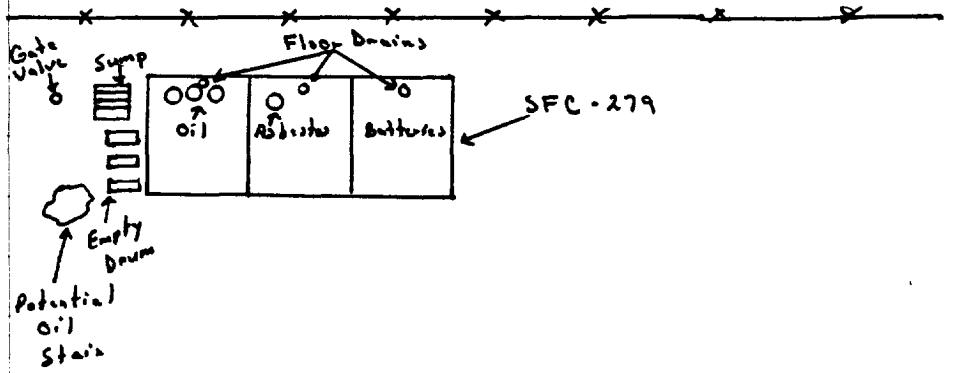 Gate
Valve
Sump
Floor Drains
SFC-279
Oil
Asbestos
Batteries
Empty
Drum
Potential
Oil
Stain